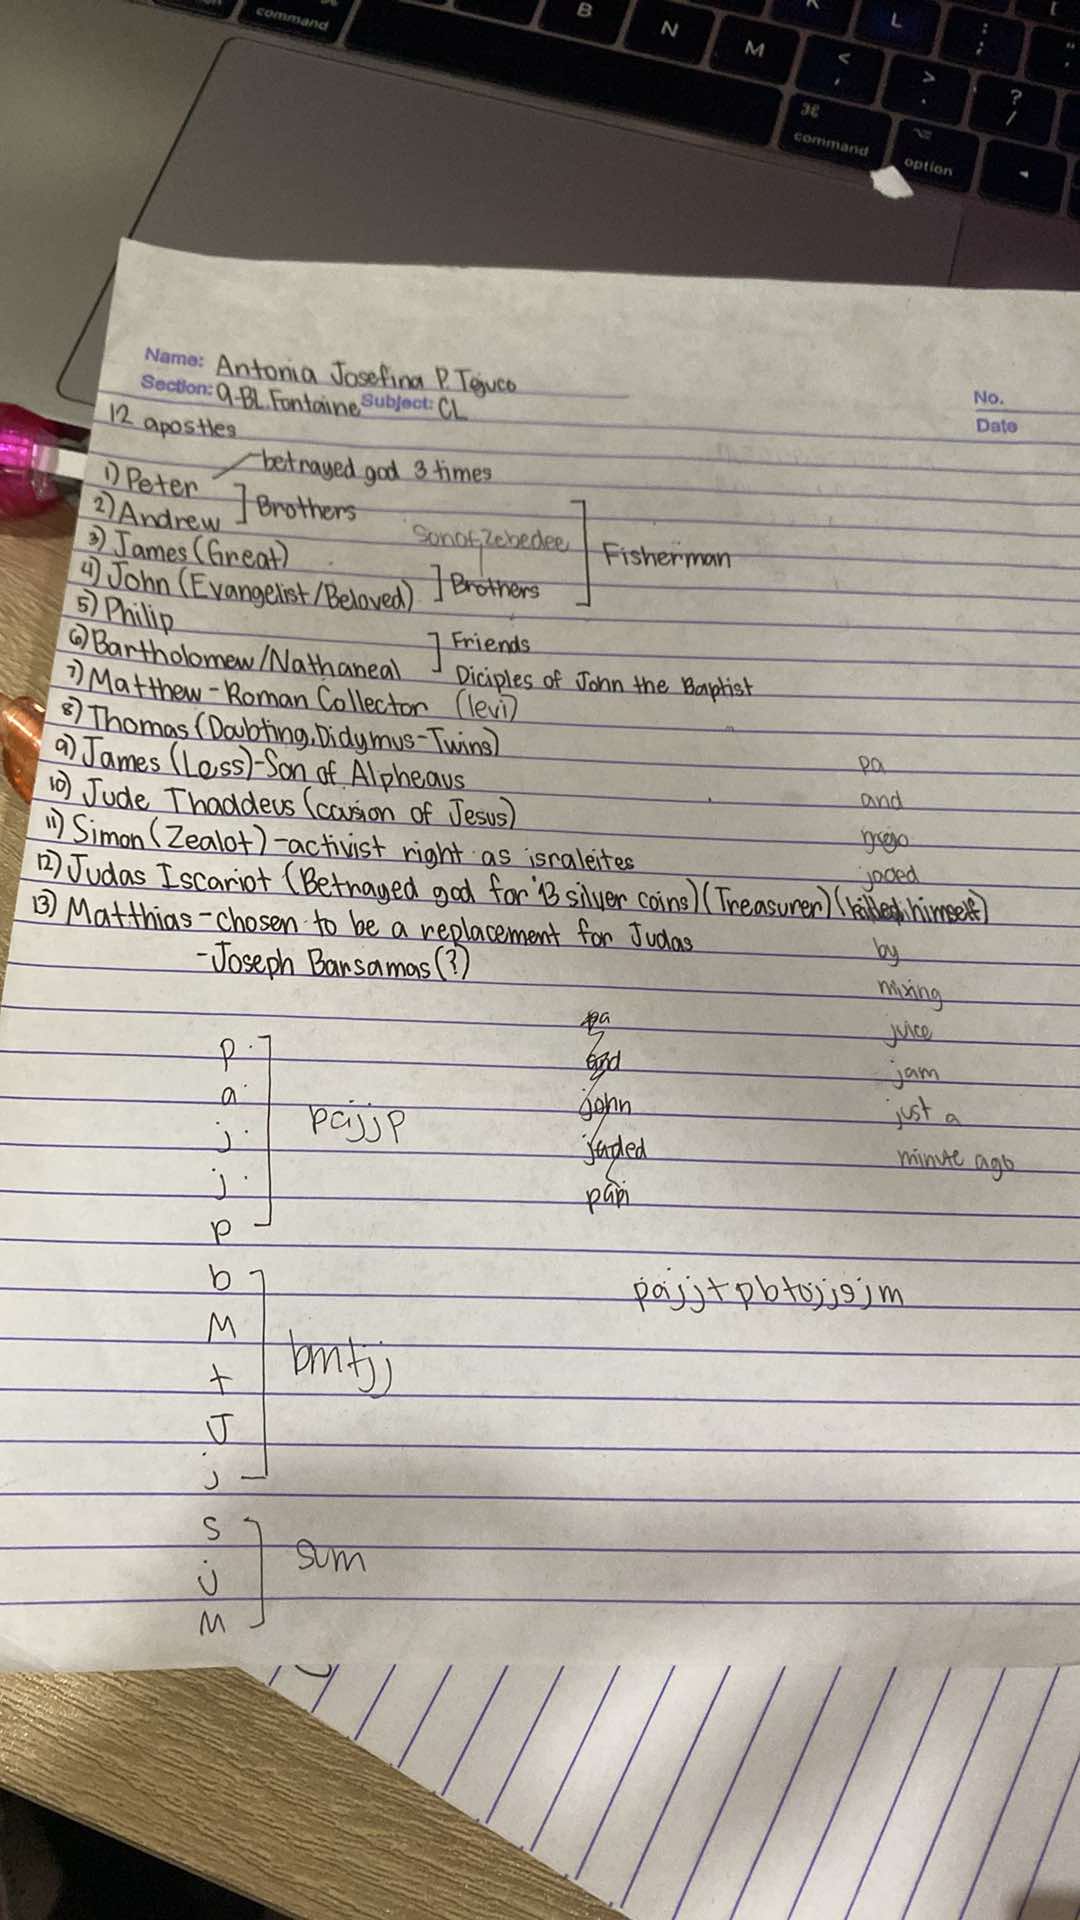 command
B
N
M
K
L
:
;
"
<
,
>
.
?
/
⌘
command
option
Name: Antonia Josefina P. Tejuco
Section: 9-BL. Fontaine Subject: CL
No.
Date
12 apostles
betrayed god 3 times
1) Peter
2) Andrew
Brothers
3) James (Great)
Son of Zebedee
Fisherman
4) John (Evangelist/Beloved)
Brothers
5) Philip
Friends
6) Bartholomew/Nathaneal
Diciples of John the Baptist
7) Matthew - Roman Collector (levi)
8) Thomas (Doubting, Didymus - Twins)
9) James (Less) - Son of Alpheaus
10) Jude Thaddeus (cousion of Jesus)
11) Simon (Zealot) - activist right as israleites
12) Judas Iscariot (Betrayed god for 13 silver coins) (Treasurer) (killed himself)
13) Matthias - chosen to be a replacement for Judas
- Joseph Barsamas (?)
pa
and
jaded
by
mixing
juice
jam
just a
minute ago
p
a
j
j
p
pajjp
pa
john
jaded
papi
b
M
t
J
j
bmtjj
S
j
M
sum